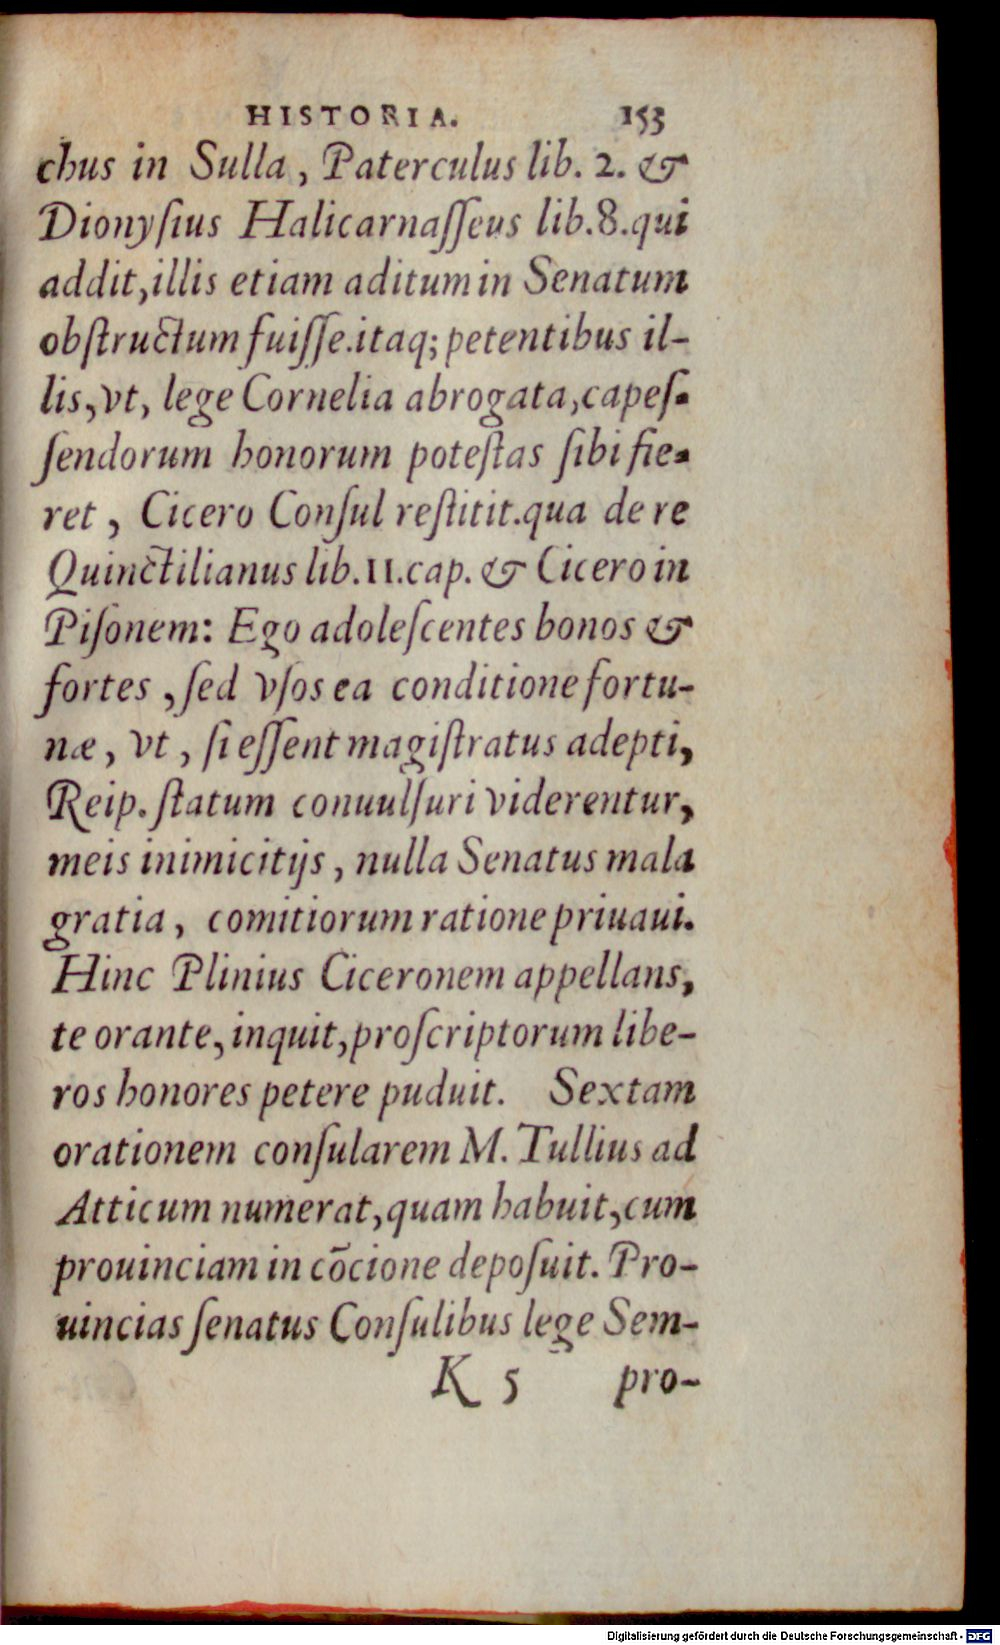 HISTORIA. 153
chus in Sulla, Paterculus lib. 2. &
Dionyſius Halicarnaſſeus lib.8.qui
addit,illis etiam aditum in Senatum
obſtructum fuiſſe.itaq; petentibus il-
lis,vt, lege Cornelia abrogata,capeſ-
ſendorum honorum poteſtas ſibi fie-
ret, Cicero Conſul reſtitit.qua de re
Quinctilianus lib.11.cap. & Cicero in
Piſonem: Ego adoleſcentes bonos &
fortes, ſed vſos ea conditione fortu-
næ, vt, ſi eſſent magiſtratus adepti,
Reip. ſtatum conuulſuri viderentur,
meis inimicitijs, nulla Senatus mala
gratia, comitiorum ratione priuaui.
Hinc Plinius Ciceronem appellans,
te orante, inquit, proſcriptorum libe-
ros honores petere puduit. Sextam
orationem conſularem M. Tullius ad
Atticum numerat, quam habuit, cum
prouinciam in cōcione depoſuit. Pro-
uincias ſenatus Conſulibus lege Sem-
K 5 pro-
Digitalisierung gefördert durch die Deutsche Forschungsgemeinschaft - DFG